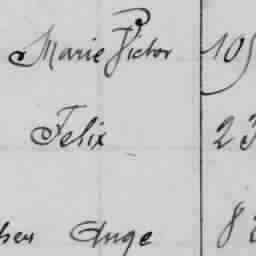 Marie Victor 105
Felix 23
Ange 8